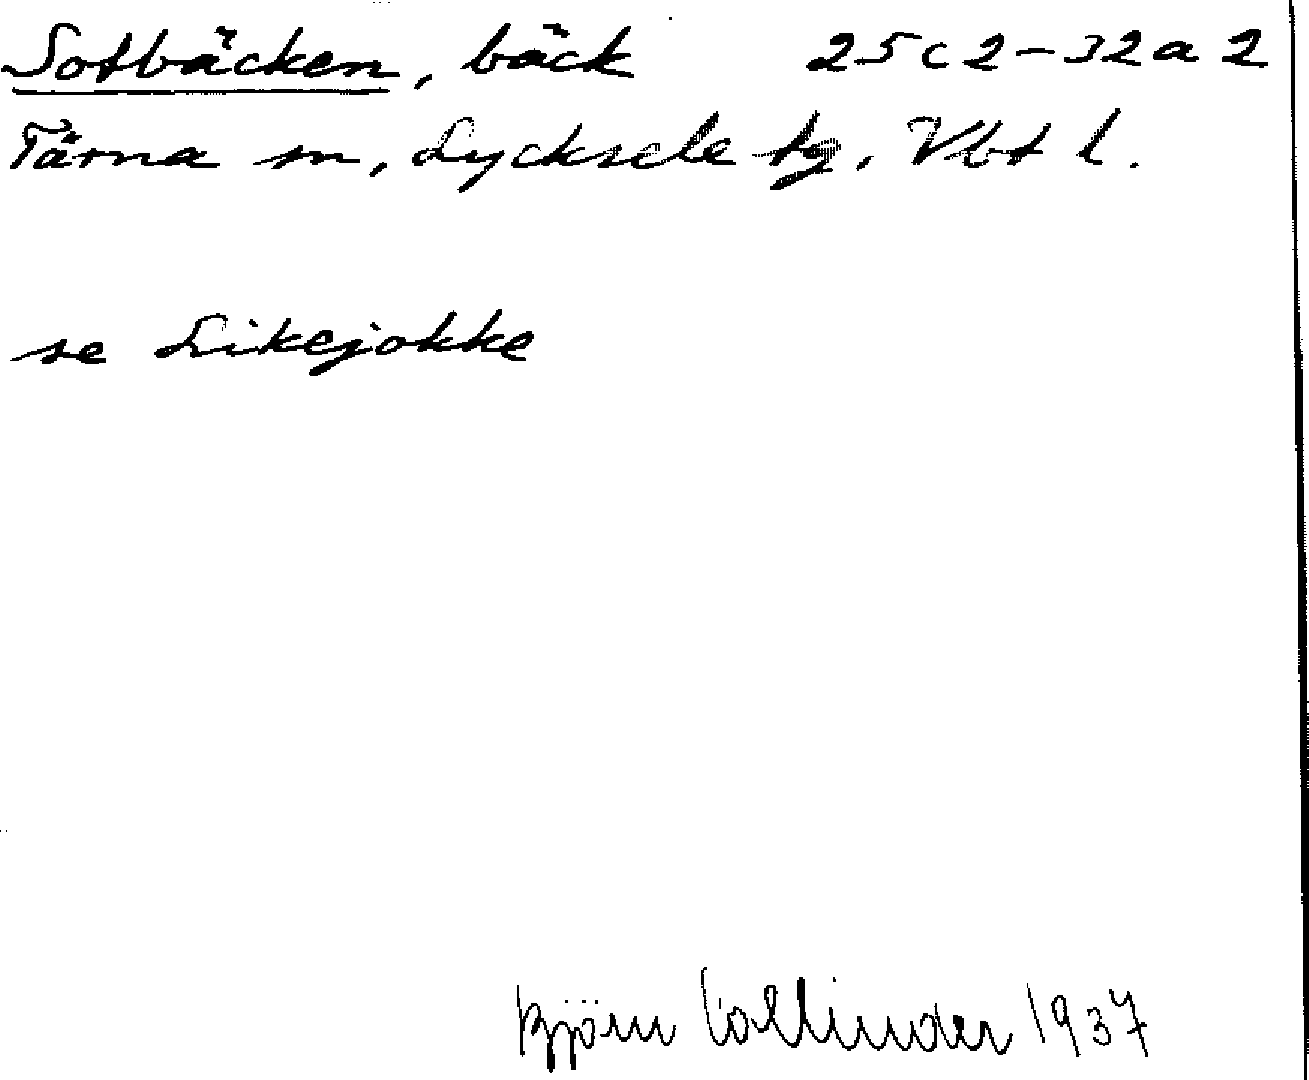 Sotbäcken, bäck 25c2-32a2
Tärna sn, Lycksele tg, Vbt l.
se Likejokke
Björn Collinder 1937